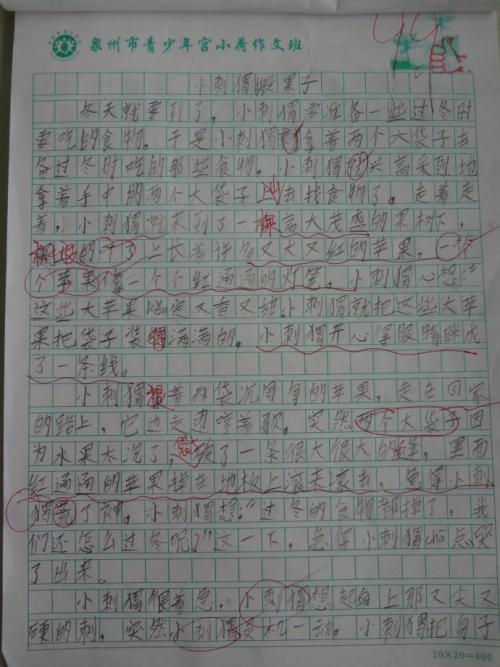 泉州市青少年宫小荷作文班
小刺猬搬果子
冬天就要到了，小刺猬要准备一些过冬时
要吃的食物。于是小刺猬拿着两个大袋子去
备过冬时吃的那些食物。小刺猬兴高采烈地
拿着手中的两个大袋子出去找食物了。走着走
着，小刺猬就来到了一棵高大茂盛的果树下，
树枝的叶子上长着许多又大又红的苹果，一个
个苹果像一个个红通通的灯笼。小刺猬心想：“
这些大苹果 一定又香又甜。小刺猬就把这些大苹
果把袋子装得满满的。小刺猬开心得眼睛眯成
了一条线。
小刺猬提着两袋沉甸甸的苹果，走在回家
的路上，它边走边哼着歌。突然两个大袋子因
为水果太沉了，破了一条很大很大的缝，里面
红通通的苹果掉在地板上滚来滚去。急得小刺
猬 了神。小刺猬想：“过冬的食物都掉了，我
们还怎么过冬呢？”这一下，急得小刺猬chà点哭
了出来。
小刺猬很着急。小刺猬想起身上那又尖又
硬的刺。突然小刺猬灵机一动。小刺猬把身子
20×20=400